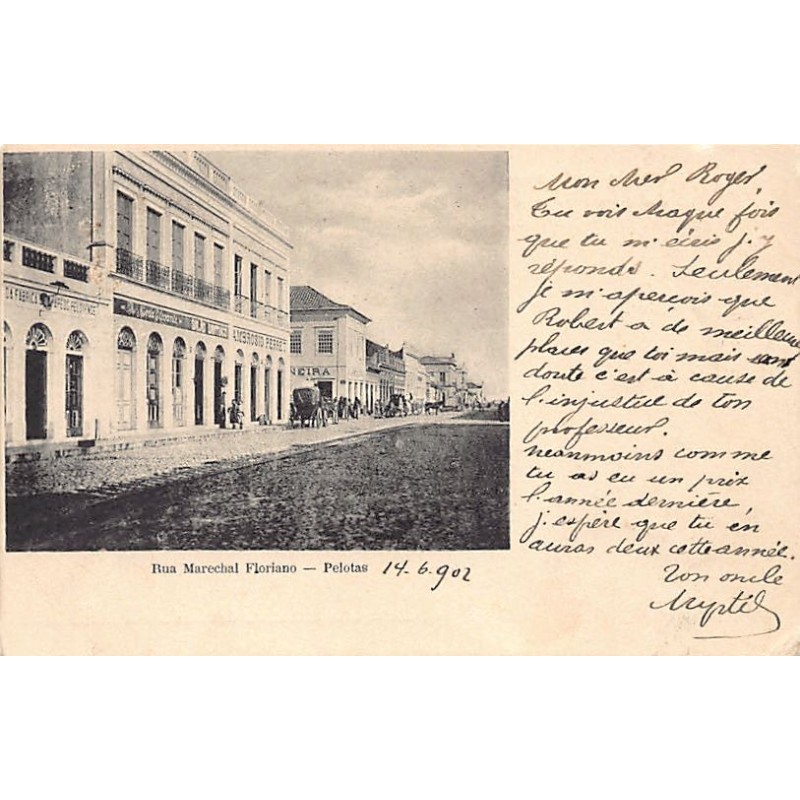 DA FABRICA
AMBROSIO PERRET
NEIRA
Rua Marechal Floriano — Pelotas 14-6-902
Mon cher Roger
Tu vois chaque fois
que tu m'écris j'y
réponds. Seulement
je m'aperçois que
Robert a de meilleures
places que toi mais sans
doute c'est à cause de
l'injustice de ton
professeur.
Neanmoins comme
tu as eu un prix
l'année dernière,
j'espère que tu en
auras deux cette année.
Ton oncle